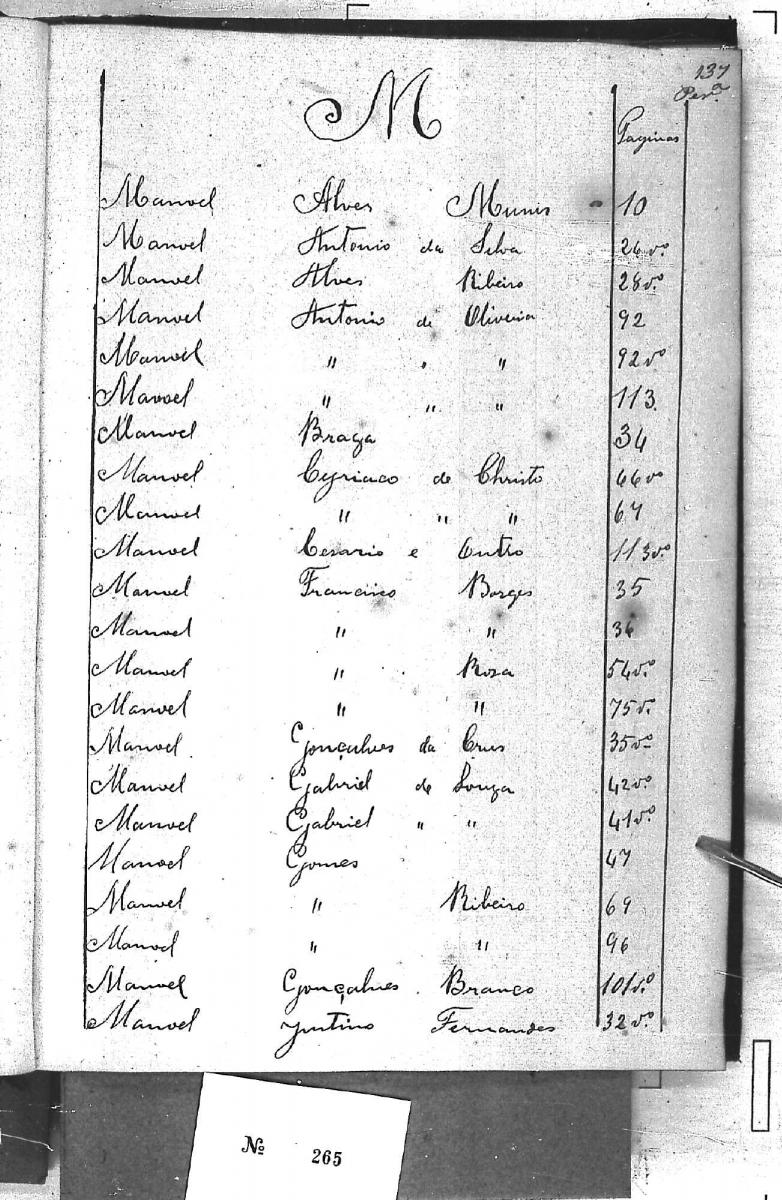 137
M
Paginas
Manoel Alves Munis 10
Manoel Antonio da Silva 26vº
Manoel Alves Ribeiro 28vº
Manoel Antonio de Oliveira 92
Manoel " " " 92vº
Manoel " " " 113
Manoel Braga 34
Manoel Cyriaco de Christo 66vº
Manoel " " " 67
Manoel Cesario e Outro 113vº
Manoel Francisco Borges 35
Manoel " " 36
Manoel " Rosa 54vº
Manoel " " 75vº
Manoel Gonçalves da Crus 35vº
Manoel Gabriel de Souza 42vº
Manoel Gabriel " " 41vº
Manoel Gomes 47
Manoel " Ribeiro 69
Manoel " " 96
Manoel Gonçalves Branco 101vº
Manoel Justino Fernandes 32vº
Nº 265